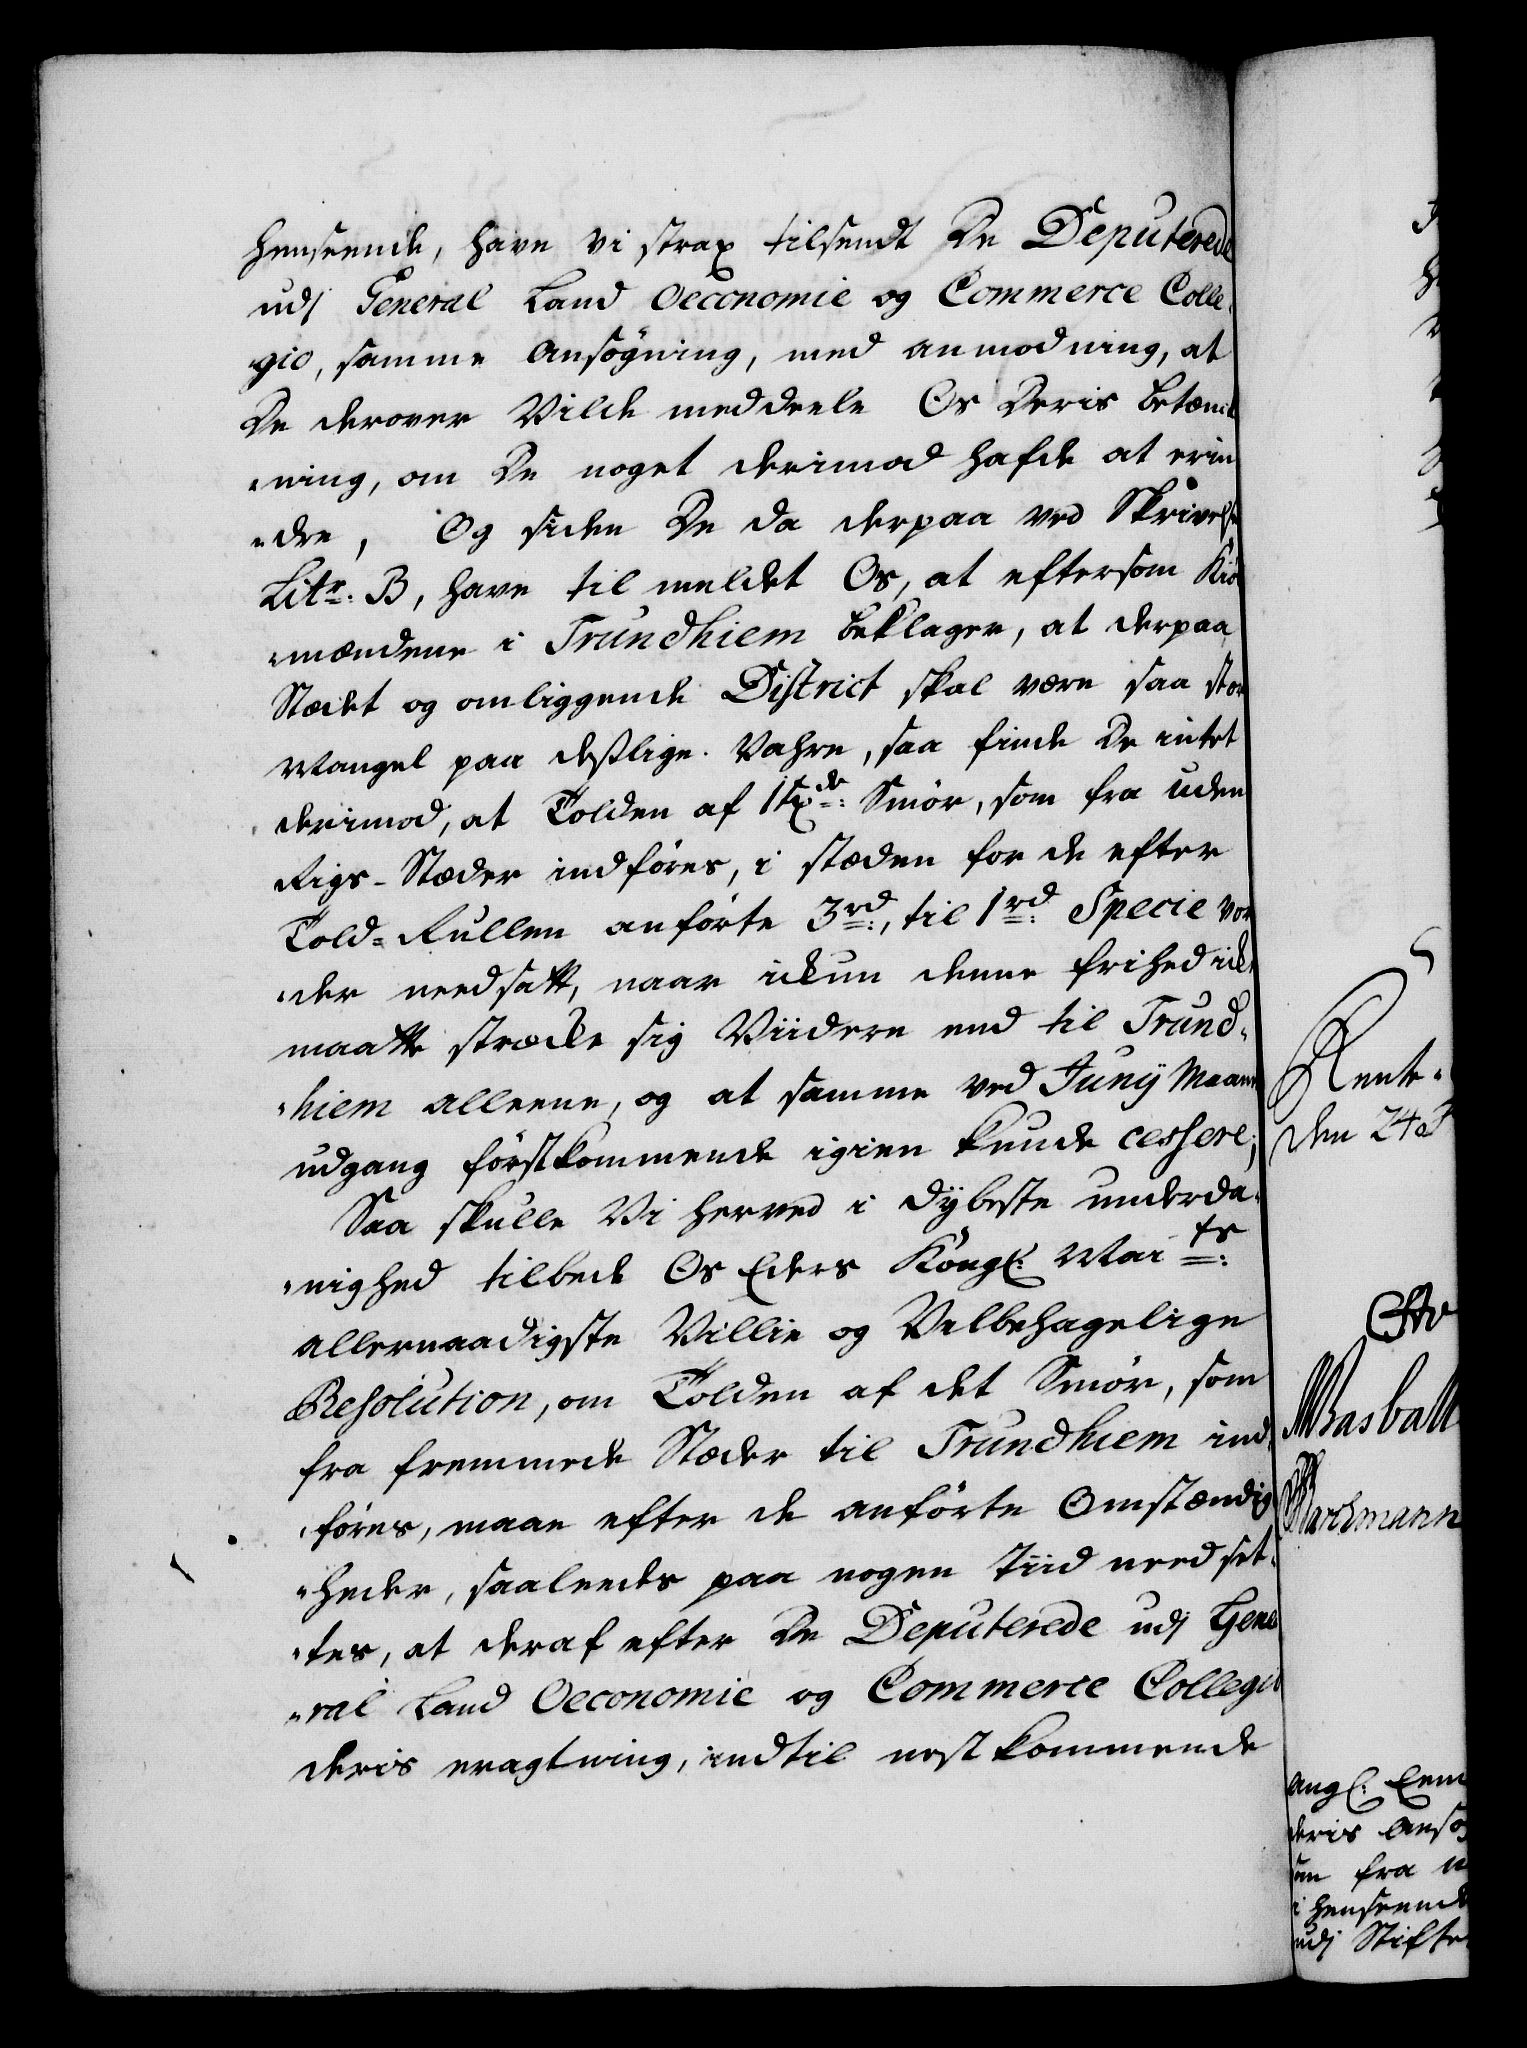 henseende, have vi strax tilsendt De Deputerede
udj General Land Oeconomie og Commerce Colle-
gio, samme Ansøgning, med anmodning, at
De derover Vilde meddeele Os Deris betænk
„ning, om De noget derimod hafde at erin
„dre, Og siden De da derpaa ved Skrivelse
Litr: B, have til meldet Os, at eftersom Kiø
„mændene i Trundhiem beklager, at derpaa
Stædet og omliggende District skal være saa stor
Mangel paa deslige Vahre, saa finde De intet
derimod, at Tolden af 1 tde: Smør, som fra uden
Rigs-Stæder indføres, i stæden for de efter
Told-Rullen anførte 3rd:, til 1rd: Specie vor
„der needsatt, naar ickun denne frihed ick
maatte strecke sig Viidere end til Trund-
„hiem alleene, og at samme ved Junij Maan
udgang førstkommende igien kunde cessere;
Saa skulle Vi herved i dÿbeste underda-
„nighed tilbede Os Eders Kongl: Maits:
allernaadigste Villie og Velbehagelige
Resolution, om Tolden af det Smør, som
fra fremmede Stæder til Trundhiem ind
„føres, maae efter de anførte Omstændig
„heder, saaleedes paa nogen Tiid need set-
„tes, at deraf efter De Deputerede udj Gene
„ral Land Oeconomie og Commerce Collegio
deris eragtning, indtil nestkommende
Rente-
den 24d
Masball
angl:
deris Ansøg
fra
i henseende
udj Stifte